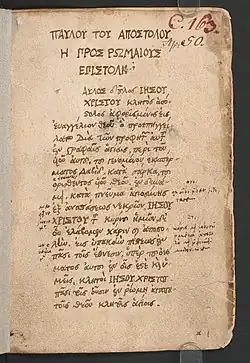 C. 163.
Ap. 50.
ΠΑΥΛΟΥ ΤΟΥ ΑΠΟΣΤΟΛΟΥ
Η ΠΡΟΣ ΡΩΜΑΙΟΥΣ
ΕΠΙΣΤΟΛΗ
ΑΥΛΟΣ δοῦλος ΙΗΣΟΥ
ΧΡΙΣΤΟΥ κλητὸς ἀπό
στολος ἀφωρισμένος εἰς
εὐαγγέλιον θεοῦ ὃ προεπηγγεί
λατο διὰ τῶν προφητῶν αὐτοῦ
ἐν γραφαῖς ἁγίαις, περὶ τοῦ
υἱοῦ αὐτοῦ, τοῦ γενομένου ἐκ σπέρ
ματος Δαβὶδ, κατὰ σάρκα, τοῦ
ὁρισθέντος υἱοῦ θεοῦ ἐν δυνά
μει, κατὰ πνεῦμα ἁγιωσύνης
ἐξ ἀναστάσεως νεκρῶν, ΙΗΣΟΥ
ΧΡΙΣΤΟΥ τοῦ κυρίου ἡμῶν, δι'
οὗ ἐλάβομεν χάριν καὶ ἀποστο
λὴν, εἰς ὑπακοὴν πίστεως ἐν
πᾶσι τοῖς ἔθνεσιν, ὑπὲρ τοῦ ὀνό
ματος αὐτοῦ ἐν οἷς ἐστὲ καὶ
ὑμεῖς, κλητοὶ ΙΗΣΟΥ ΧΡΙΣΤΟΥ
πᾶσι τοῖς οὖσιν ἐν ῥώμῃ
τοῖς θεοῦ κλητοῖς ἁγίοις.